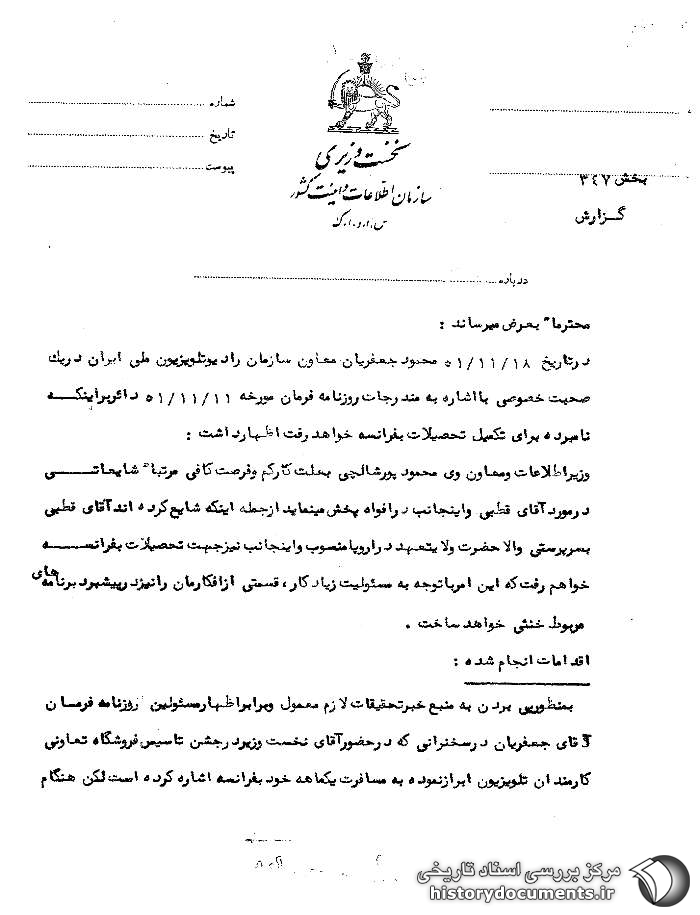 شماره
تاریخ
پیوست
نخست وزیری
سازمان اطلاعات و امنیت کشور
س.ا.و.ا.ک
بخش ۳۴۷
گزارش
درباره
محترما" بعرض میرساند :
درتاریخ ۵۱/۱۱/۱۸ محمود جعفریان معاون سازمان رادیوتلویزیون ملی ایران دریک
صحبت خصوصی بااشاره به مندرجات روزنامه فرمان مورخه ۵۱/۱۱/۱۱ دائربراینکه
نامبرده برای تکمیل تحصیلات بفرانسه خواهد رفت اظهارداشت :
وزیراطلاعات ومعاون وی محمود پورشالچی بعلت کارکم وفرصت کافی مرتبا" شایعاتی
درمورد آقای قطبی واینجانب درافواه پخش مینماید ازجمله اینکه شایع کرده اندآقای قطبی
بسرپرستی والا حضرت ولایتعهد دراروپا منصوب واینجانب نیزجهت تحصیلات بفرانسه
خواهم رفت که این امرباتوجه به مسئولیت زیاد کار، قسمتی ازافکارمان رانیزد رپیشبرد برنامه های
مربوط خنثی خواهد ساخت .
اقدامات انجام شده :
بمنظورپی بردن به منبع خبرتحقیقات لازم معمول وبرابراظهارمسئولین روزنامه فرمان
آقای جعفریان درسخنرانی که درحضورآقای نخست وزیردرجشن تاسیس فروشگاه تعاونی
کارمندان تلویزیون ابرازنموده به مسافرت یکماهه خود بفرانسه اشاره کرده است لکن هنگام
مرکز بررسی اسناد تاریخی
historydocuments.ir